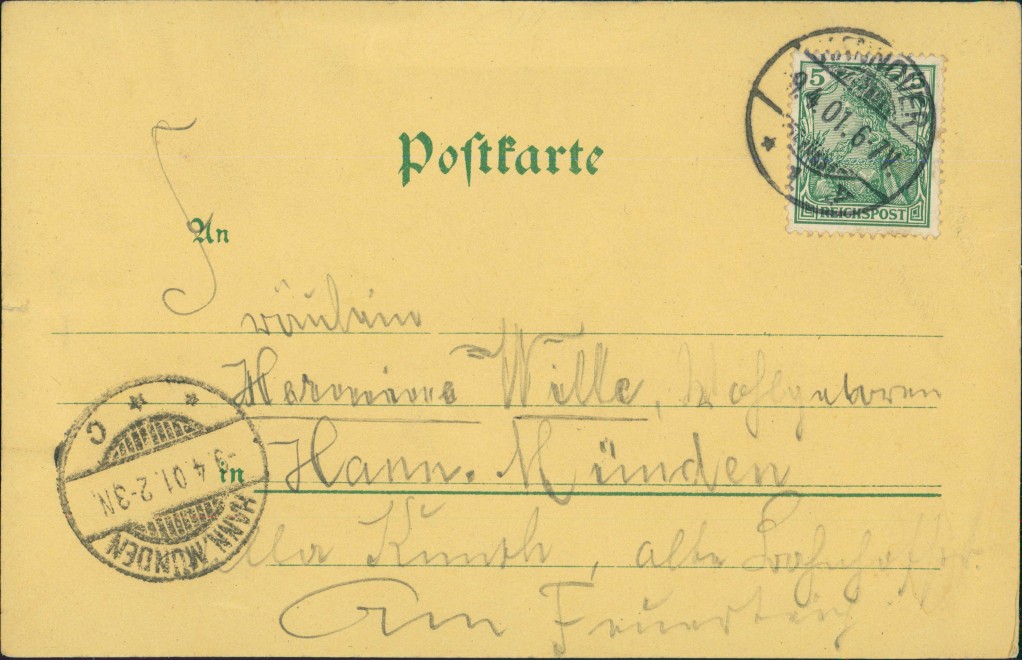 HANNOVER
9.4.01.6-7V.
5
REICHSPOST
Postkarte
An
Fräulein
Hermine Wille, Wohlgeboren
in Hann. Münden
alte Bahnhofstr.
Am Feuerteich
C
-9.4.01.2-3N.
HANN. MÜNDEN